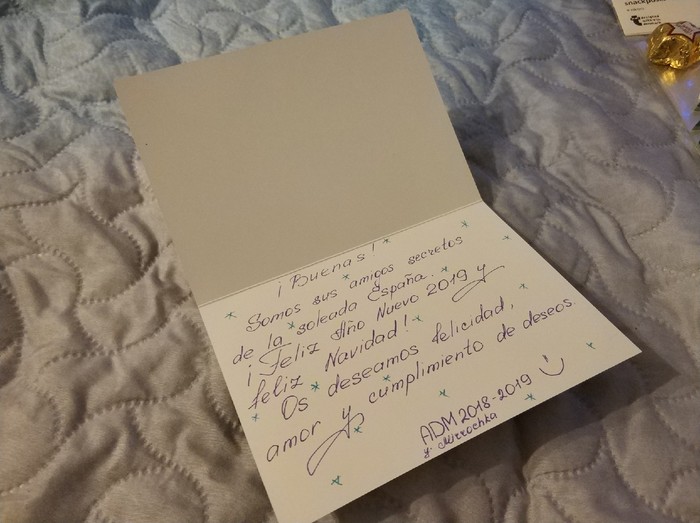 ¡Buenas!
Somos sus amigos secretos
de la soleada España.
¡Feliz Año Nuevo 2019 y
feliz Navidad!
Os deseamos felicidad,
amor y cumplimiento de deseos.
ADM 2018-2019